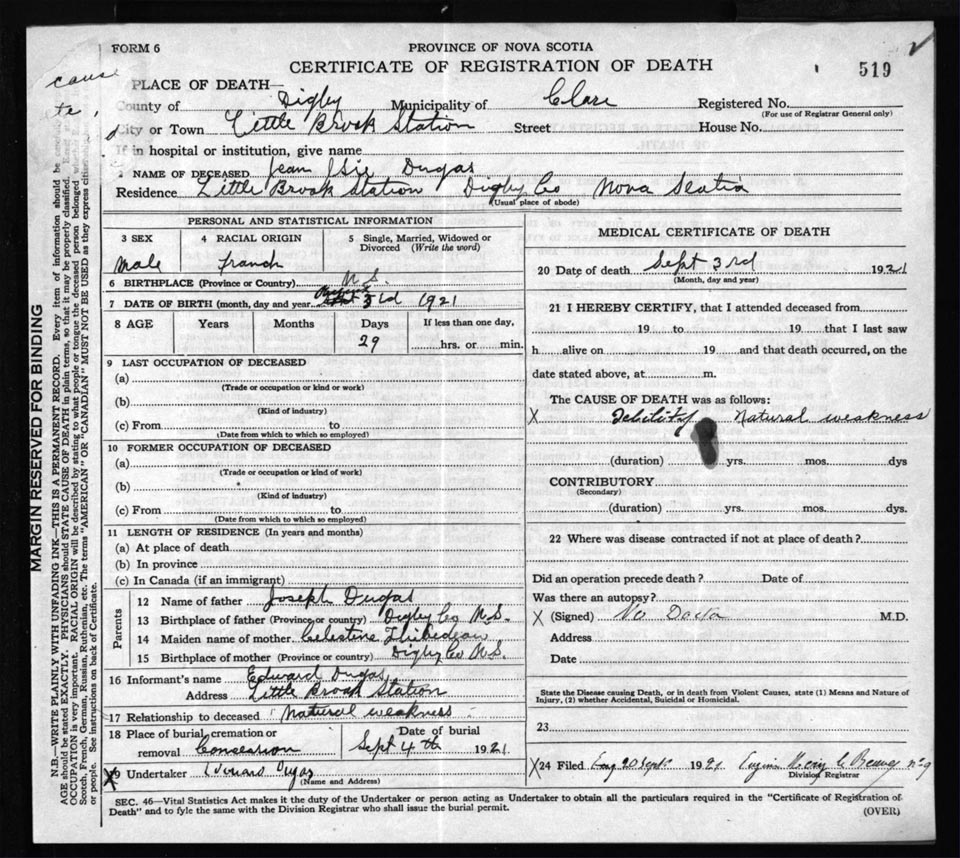 FORM 6
PROVINCE OF NOVA SCOTIA
CERTIFICATE OF REGISTRATION OF DEATH
519
cause
te,
PLACE OF DEATH—
County of Digby Municipality of Clare Registered No.
(For use of Registrar General only)
City or Town Little Brook Station Street House No.
If in hospital or institution, give name
2 NAME OF DECEASED Jean Isie Dugas
Residence Little Brook Station Digby Co Nova Scotia
(Usual place of abode)
PERSONAL AND STATISTICAL INFORMATION
3 SEX 4 RACIAL ORIGIN 5 Single, Married, Widowed or Divorced (Write the word)
Male franch
6 BIRTHPLACE (Province or Country) N S.
7 DATE OF BIRTH (month, day and year 3rd 1921
8 AGE Years Months Days If less than one day,
29 hrs. or min.
9 LAST OCCUPATION OF DECEASED
(a)
(Trade or occupation or kind or work)
(b)
(Kind of industry)
(c) From to
(Date from which to which so employed)
10 FORMER OCCUPATION OF DECEASED
(a)
(Trade or occupation or kind of work)
(b)
(Kind of industry)
(c) From to
(Date from which to which so employed)
11 LENGTH OF RESIDENCE (In years and months)
(a) At place of death
(b) In province
(c) In Canada (if an immigrant)
Parents
12 Name of father Joseph Dugas
13 Birthplace of father (Province or country) Digby Co N.S.
14 Maiden name of mother Celestine Thibedeau
15 Birthplace of mother (Province or country) Digby Co N.S.
16 Informant's name Edward Dugas
Address Little Brook Station
17 Relationship to deceased natural weakness
18 Place of burial, cremation or removal Date of burial
Sept 4th 1921
19 Undertaker Edward Dugas
(Name and Address)
MEDICAL CERTIFICATE OF DEATH
20 Date of death Sept 3rd 1921
(Month, day and year)
21 I HEREBY CERTIFY, that I attended deceased from
19 to 19 that I last saw
h alive on 19 and that death occurred, on the
date stated above, at m.
The CAUSE OF DEATH was as follows:
X Debility Natural weakness
(duration) yrs. mos. dys
CONTRIBUTORY
(Secondary)
(duration) yrs. mos. dys.
22 Where was disease contracted if not at place of death?
Did an operation precede death? Date of
Was there an autopsy?
X (Signed) No Docta M.D.
Address
Date
State the Disease causing Death, or in death from Violent Causes, state (1) Means and Nature of
Injury, (2) whether Accidental, Suicidal or Homicidal.
23
X 24 Filed 20 Sept 1921
Division Registrar
SEC. 46—Vital Statistics Act makes it the duty of the Undertaker or person acting as Undertaker to obtain all the particulars required in the "Certificate of Registration of
Death" and to fyle the same with the Division Registrar who shall issue the burial permit.
(OVER)
MARGIN RESERVED FOR BINDING
N.B.—WRITE PLAINLY WITH UNFADING INK—THIS IS A PERMANENT RECORD. Every item of information should be
AGE should be stated EXACTLY. PHYSICIANS should STATE CAUSE OF DEATH in plain terms, so that it may be properly classified.
OCCUPATION is very important. RACIAL ORIGIN will be described by stating to what people or tongue the deceased person belonged
Scotch, French, German, Russian, Ruthenian, etc. The terms "AMERICAN" OR "CANADIAN" MUST NOT BE USED as they express citizenship
or people. See instructions on back of Certificate.